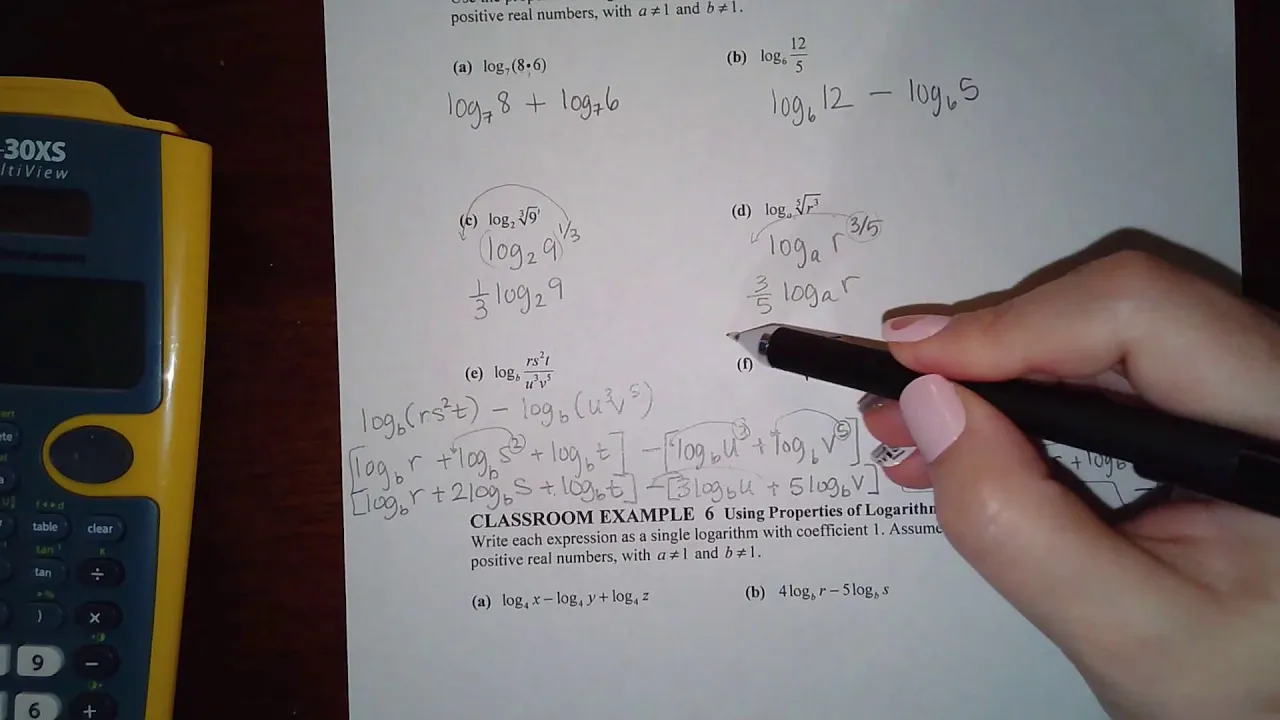 positive real numbers, with a ≠ 1 and b ≠ 1.
(a) log₇(8•6)
(b) log₆ 12/5
log₇8 + log₇6
log₆12 − log₆5
(c) log₂ ∛9¹
(d) logₐ ⁵√r³
log₂9^1/3
logₐ r^3/5
1/3 log₂9
3/5 logₐ r
(e) log_b rs²t/u³v⁵
(f)
log_b(rs²t) − log_b(u³v⁵)
[log_b r + log_b s² + log_b t] − [log_b u³ + log_b v⁵]
[log_b r + 2log_b s + log_b t] − [3log_b u + 5log_b v]
CLASSROOM EXAMPLE 6 Using Properties of Logarithm
Write each expression as a single logarithm with coefficient 1. Assume
positive real numbers, with a ≠ 1 and b ≠ 1.
(a) log₄ x − log₄ y + log₄ z
(b) 4 log_b r − 5 log_b s
-30XS
ltiView
table
clear
tan⁻¹
tan
÷
)
×
9
−
6
+